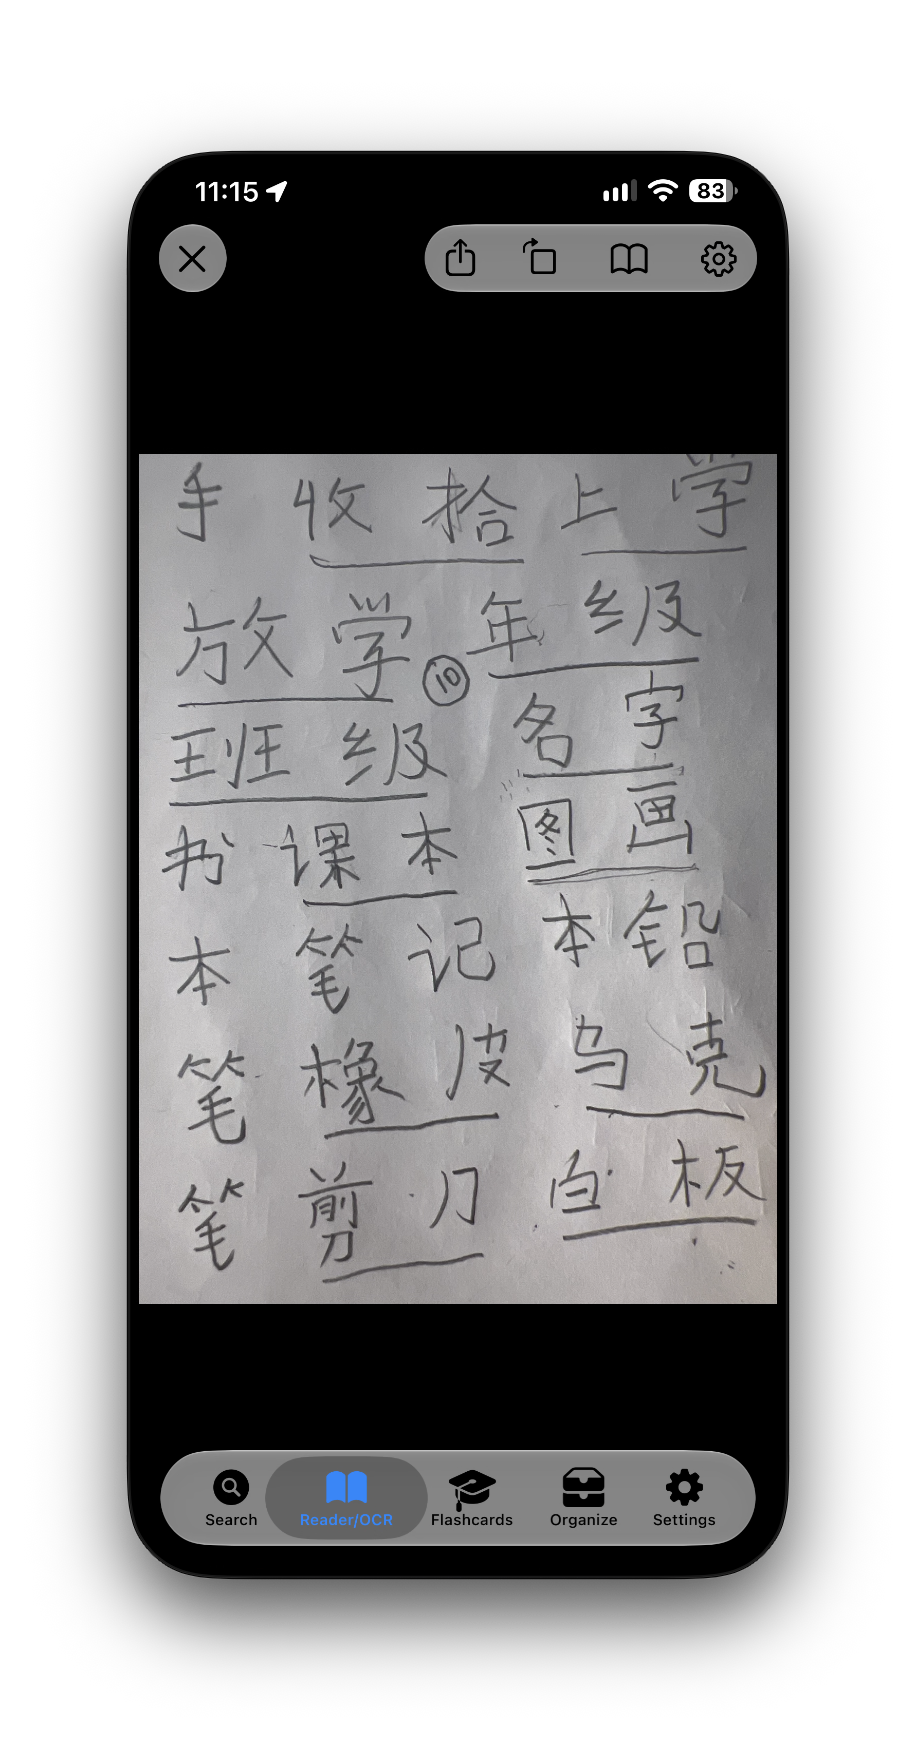 11:15
83
手 收 拾 上 学
放 学 年 级
⑩
班 级 名 字
书 课 本 图 画
本 笔 记 本 铅
笔 橡 皮 乌 克
笔 剪 刀 白 板
Search Reader/OCR Flashcards Organize Settings